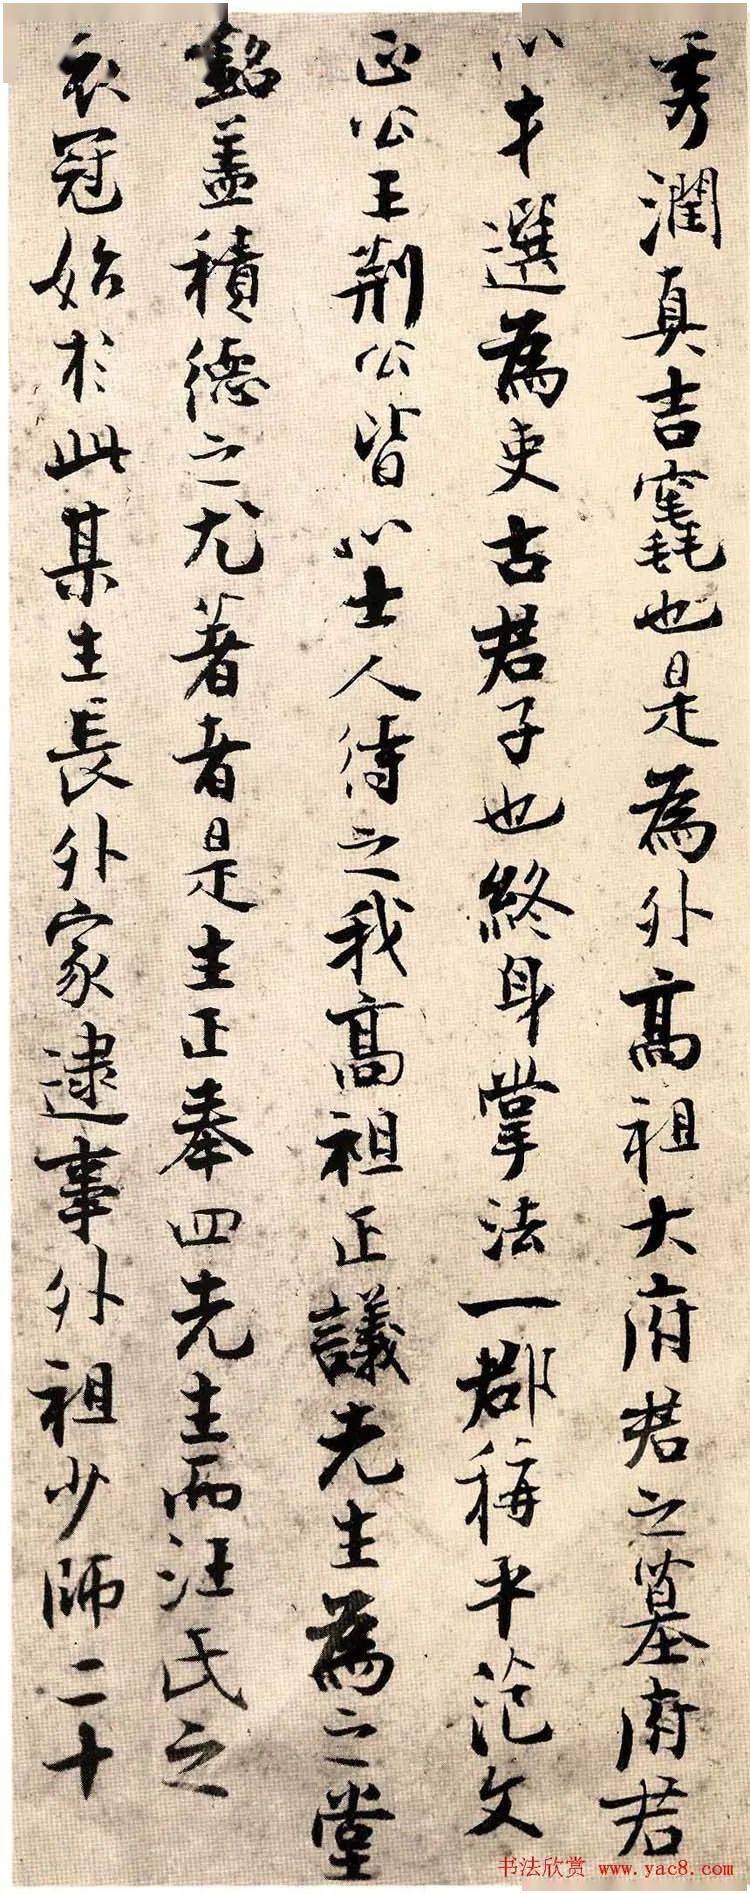 秀潤真吉竁也是為外高祖大府君之墓府君
以才選為吏古君子也終身掌法一郡稱平范文
正公王荆公皆以士人待之我高祖正議先生為之堂
銘盖積德之尤著者是生正奉四先生而汪氏之
衣冠始於此某生長外家逮事外祖少師二十
书法欣赏 www.yac8.com